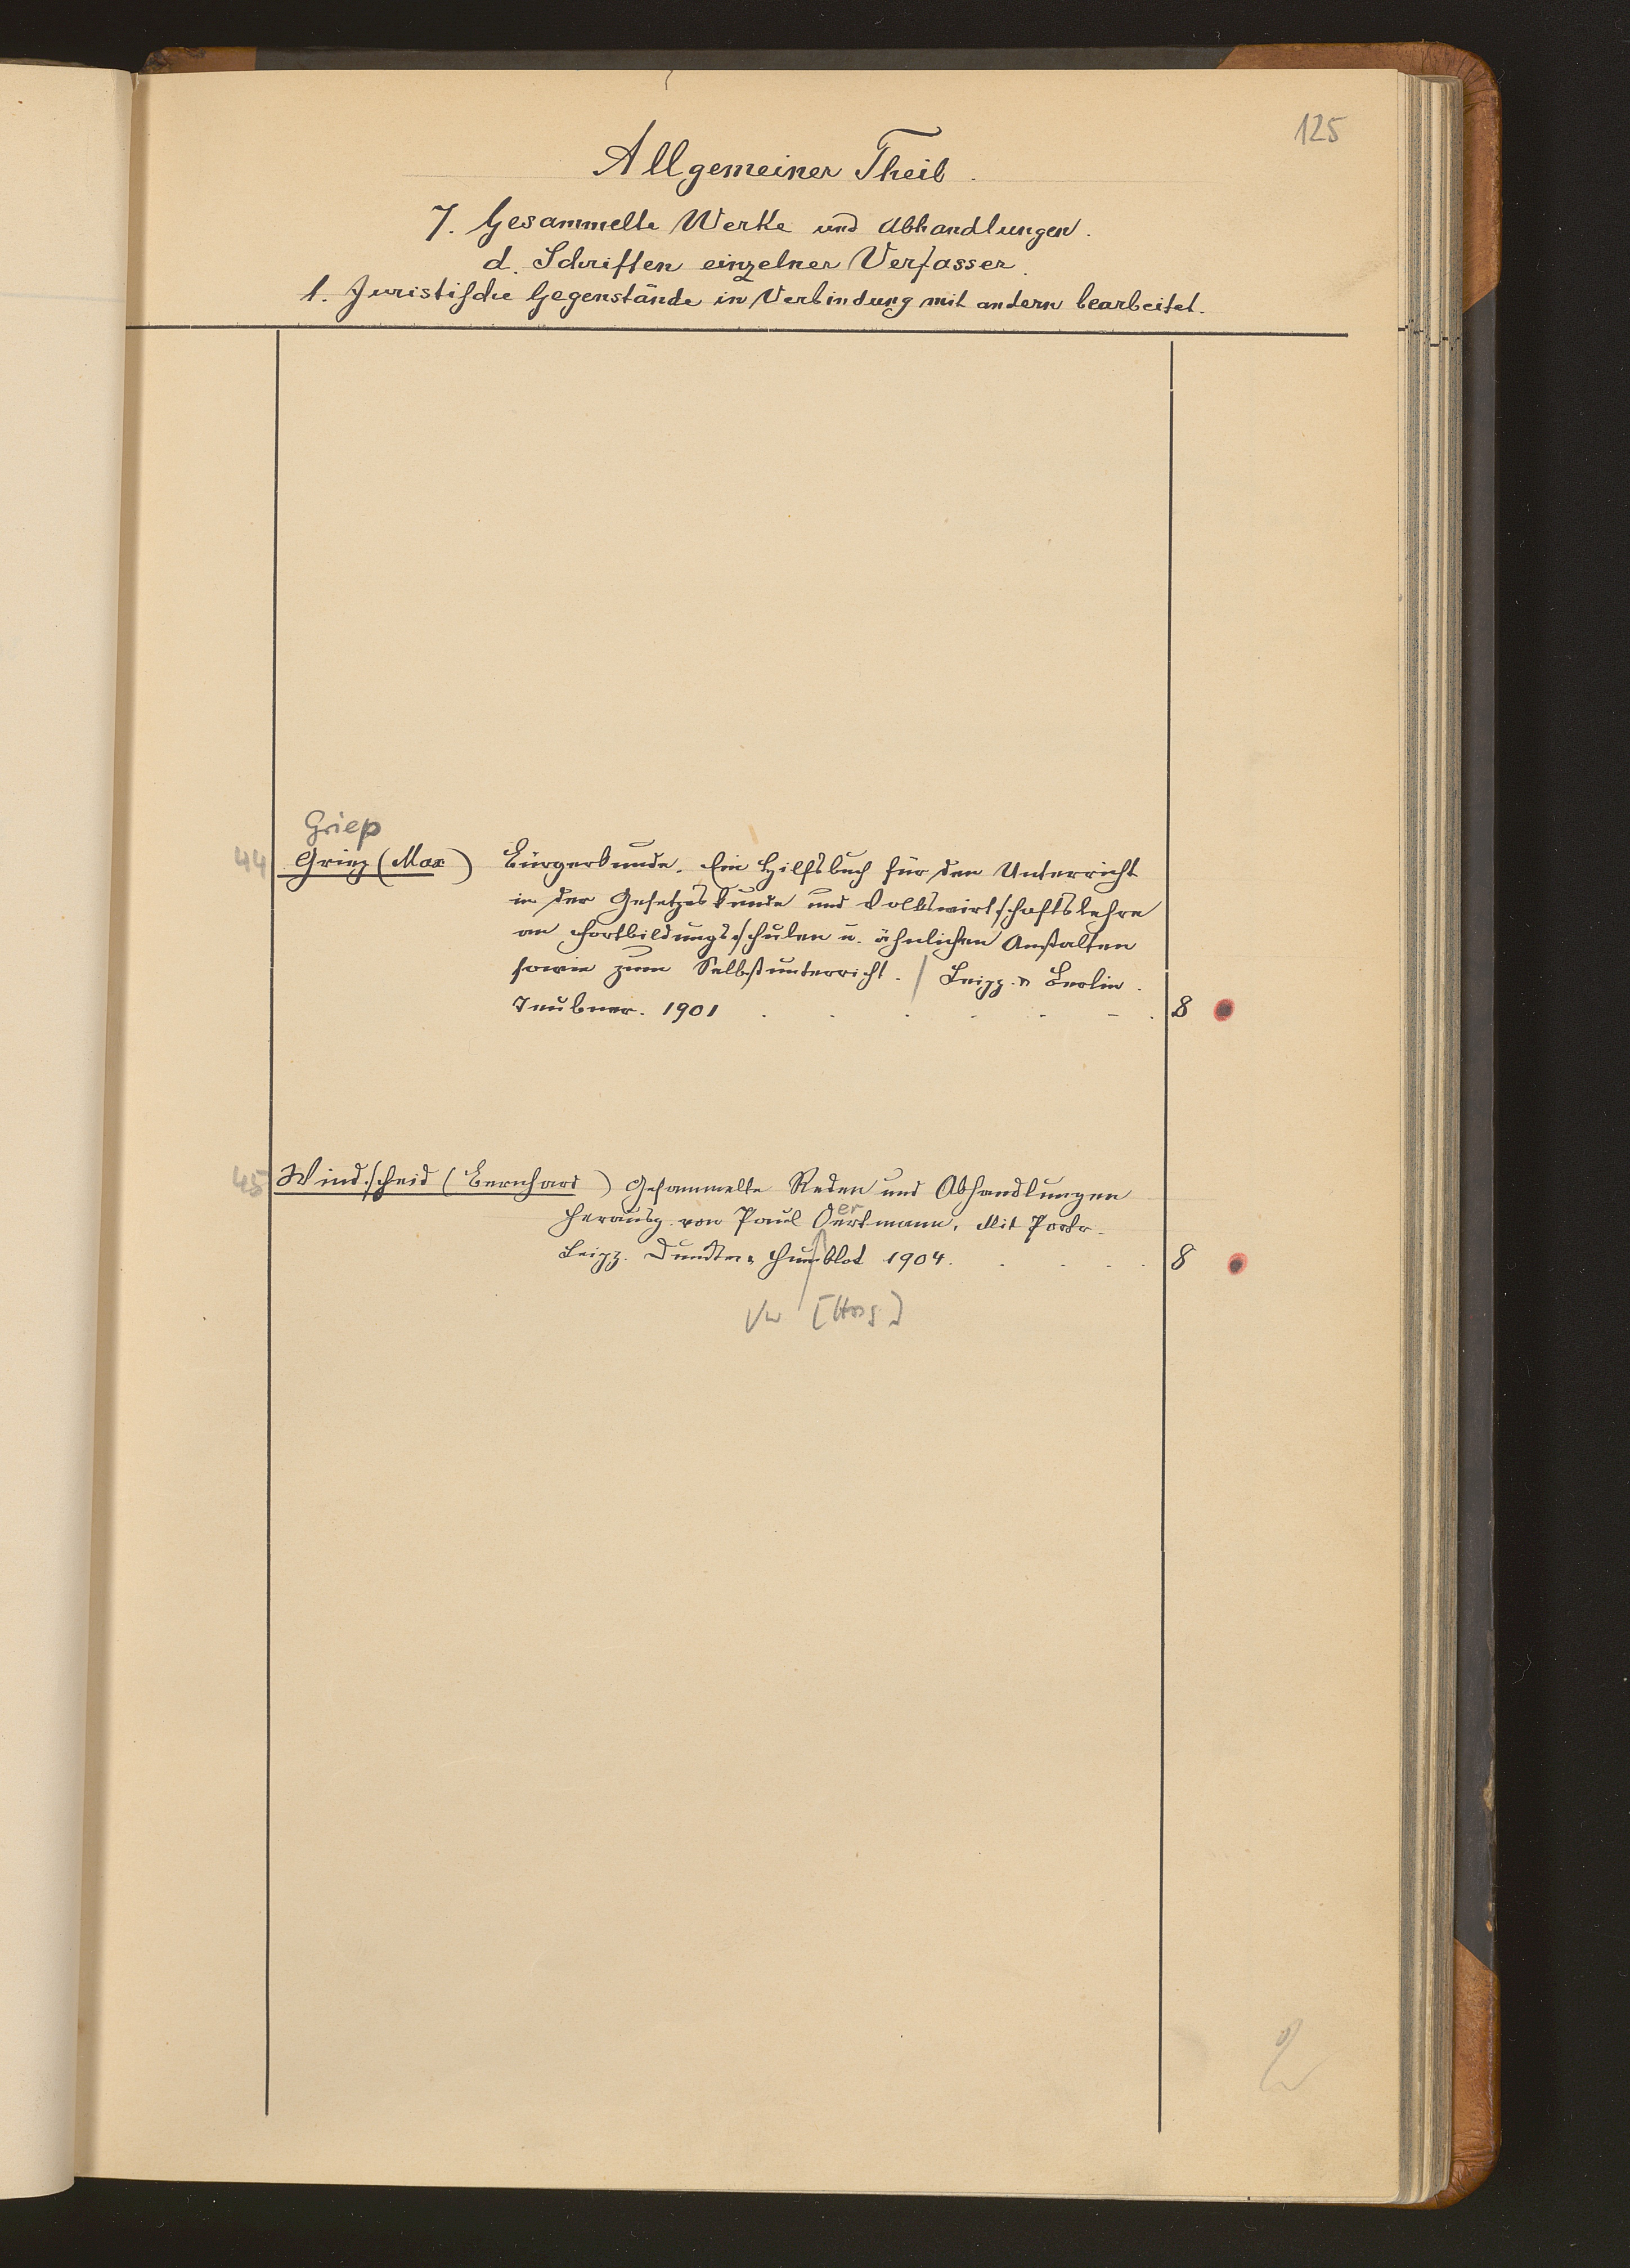 125
Allgemeiner Theil.
7. Gesammelte Werke und Abhandlungen.
d. Schriften einzelner Verfasser.
1. Juristische Gegenstände in Verbindung mit andern bearbeitet.
Griep
44 Griep (Max) Bürgerkunde. Ein Hilfsbuch für den Unterricht
in der Gesetzeskunde und Volkswirtschaftslehre
an Fortbildungsschulen u. ähnlichen Anstalten
sowie zum Selbstunterricht. / Leipz. u. Berlin.
Teubner. 1901 . . . . . . . 8
45 Windscheid (Bernhard) Gesammelte Reden und Abhandlungen
herausg. von Paul Oertmann. Mit Portr.
er
Leipz. Duncker u. Humblot 1904. . . . . 8
Vw [Hrsg]